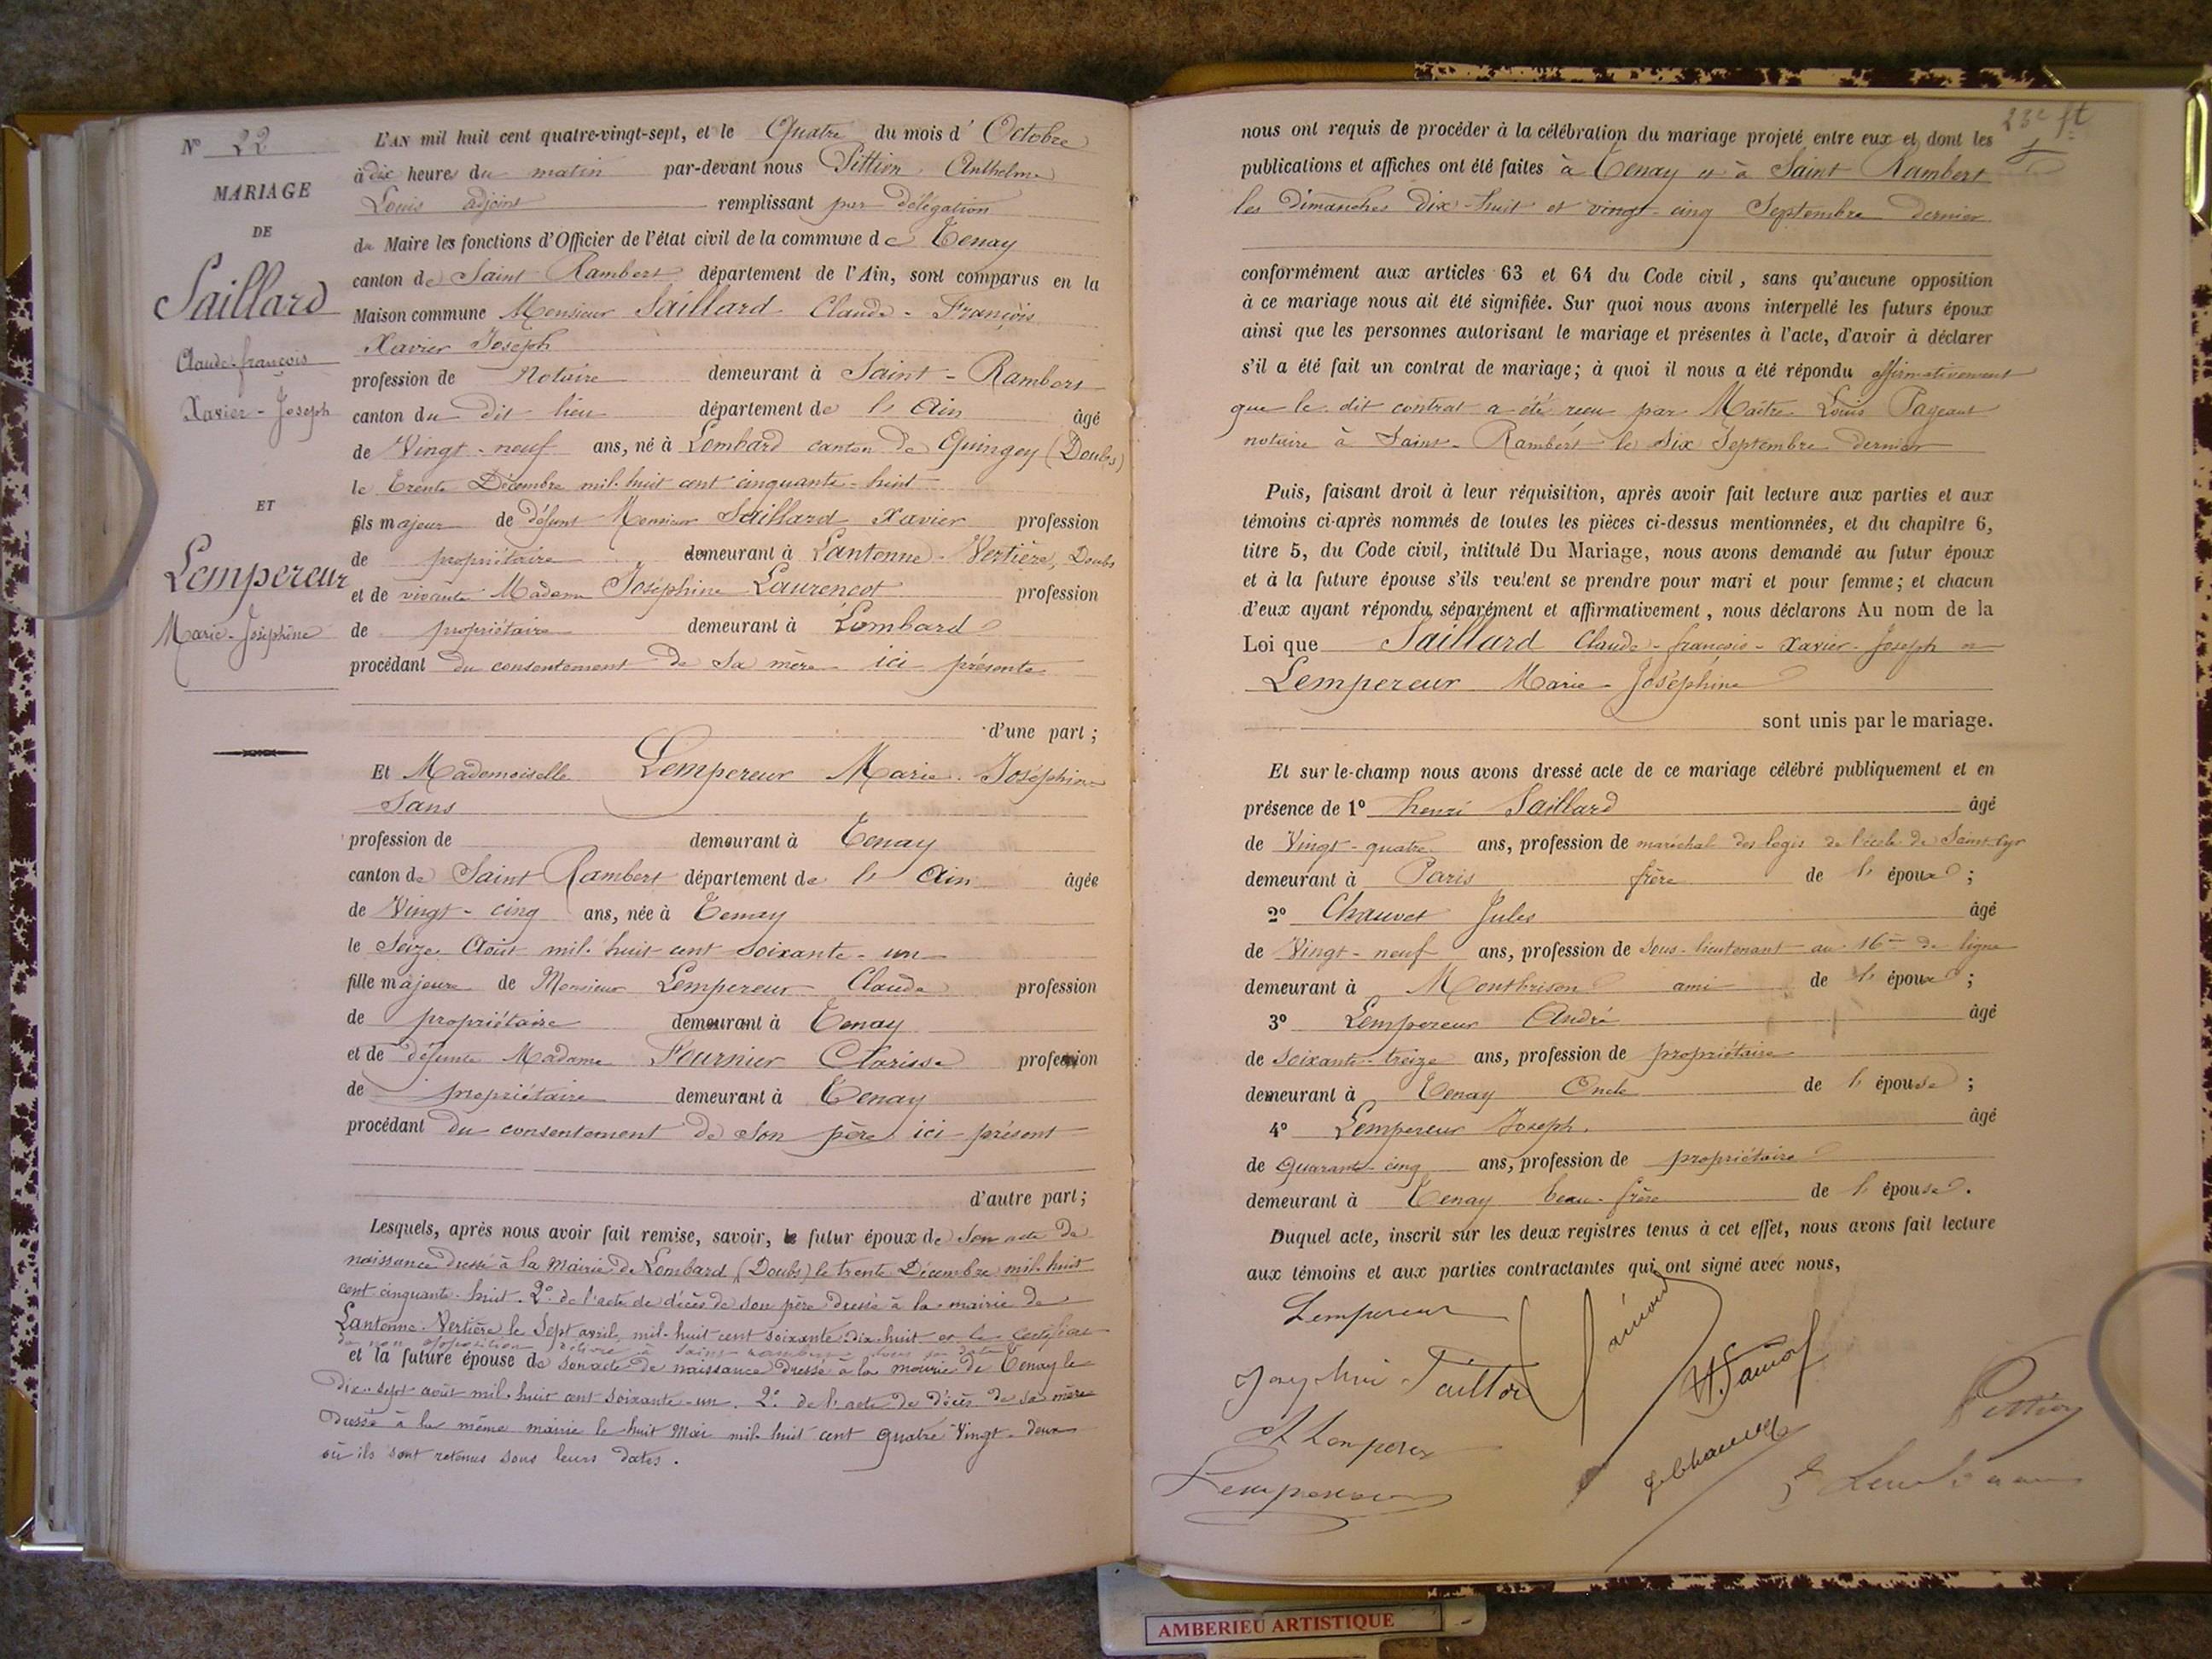 N° 22
MARIAGE
DE
Saillard
Claude-françois
Xavier-Joseph
ET
Lempereur
Marie-Joséphine
L'AN mil huit cent quatre-vingt-sept, et le Quatre du mois d' Octobre
à dix heures du matin par-devant nous Pittion Anthelme
Louis adjoint remplissant par délégation
du Maire les fonctions d'Officier de l'état civil de la commune de Tenay
canton de Saint Rambert département de l'Ain, sont comparus en la
Maison commune Monsieur Saillard Claude-François
Xavier Joseph
profession de Notaire demeurant à Saint-Rambert
canton du dit lieu département de l'Ain âgé
de Vingt-neuf ans, né à Lombard canton de Quingey (Doubs)
le trente Décembre mil-huit cent cinquante-huit
fils majeur de défunt Monsieur Saillard Xavier profession
de propriétaire demeurant à Lantenne-Vertière, Doubs
et de vivante Madame Joséphine Laurençot profession
de propriétaire demeurant à Lombard
procédant du consentement de sa mère ici présente
d'une part ;
Et Mademoiselle Lempereur Marie-Joséphine
Sans
profession de demeurant à Tenay
canton de Saint Rambert département de l'Ain âgée
de Vingt-cinq ans, née à Tenay
le Seize Août mil-huit cent soixante-un
fille majeure de Monsieur Lempereur Claude profession
de propriétaire demeurant à Tenay
et de défunte Madame Fournier Clarisse profession
de propriétaire demeurant à Tenay
procédant du consentement de son père ici présent
d'autre part ;
Lesquels, après nous avoir fait remise, savoir, le futur époux de son acte de
naissance dressé à la Mairie de Lombard (Doubs) le trente Décembre mil-huit
cent cinquante-huit. 2° de l'acte de décès de son père dressé à la mairie de
Lantenne-Vertière le Sept avril mil-huit cent soixante-dix-huit et le certificat
de non opposition délivré à Saint-Rambert
et la future épouse de son acte de naissance dressé à la mairie de Tenay le
dix-sept août mil-huit cent soixante-un. 2° de l'acte de décès de sa mère
dressé à la même mairie le huit Mai mil-huit cent quatre-Vingt-deux
où ils sont retenus sous leurs dates.
23e ft
nous ont requis de procéder à la célébration du mariage projeté entre eux et dont les
publications et affiches ont été faites à Tenay et à Saint Rambert
les dimanches dix-huit et vingt-cinq Septembre dernier
conformément aux articles 63 et 64 du Code civil, sans qu'aucune opposition
à ce mariage nous ait été signifiée. Sur quoi nous avons interpellé les futurs époux
ainsi que les personnes autorisant le mariage et présentes à l'acte, d'avoir à déclarer
s'il a été fait un contrat de mariage; à quoi il nous a été répondu affirmativement
que le dit contrat a été reçu par Maître Louis Pageaut
notaire à Saint-Rambert le Six Septembre dernier
Puis, faisant droit à leur réquisition, après avoir fait lecture aux parties et aux
témoins ci-après nommés de toutes les pièces ci-dessus mentionnées, et du chapitre 6,
titre 5, du Code civil, intitulé Du Mariage, nous avons demandé au futur époux
et à la future épouse s'ils veulent se prendre pour mari et pour femme; et chacun
d'eux ayant répondu séparément et affirmativement, nous déclarons Au nom de la
Loi que Saillard Claude-françois-Xavier-Joseph et
Lempereur Marie-Joséphine
sont unis par le mariage.
Et sur-le-champ nous avons dressé acte de ce mariage célébré publiquement et en
présence de 1° henri Saillard âgé
de Vingt-quatre ans, profession de maréchal des logis de l'école de Saint Cyr
demeurant à Paris frère de l'époux ;
2° Chauvet Jules âgé
de Vingt-neuf ans, profession de Sous-lieutenant au 16me de ligne
demeurant à Montbrison ami de l'époux ;
3° Lempereur André âgé
de soixante-treize ans, profession de propriétaire
demeurant à Tenay Oncle de l'épouse ;
4° Lempereur Joseph âgé
de quarante-cinq ans, profession de propriétaire
demeurant à Tenay beau-frère de l'épouse.
Duquel acte, inscrit sur les deux registres tenus à cet effet, nous avons fait lecture
aux témoins et aux parties contractantes qui ont signé avec nous,
Lempereur
Pittion
Lempereur
AMBERIEU ARTISTIQUE